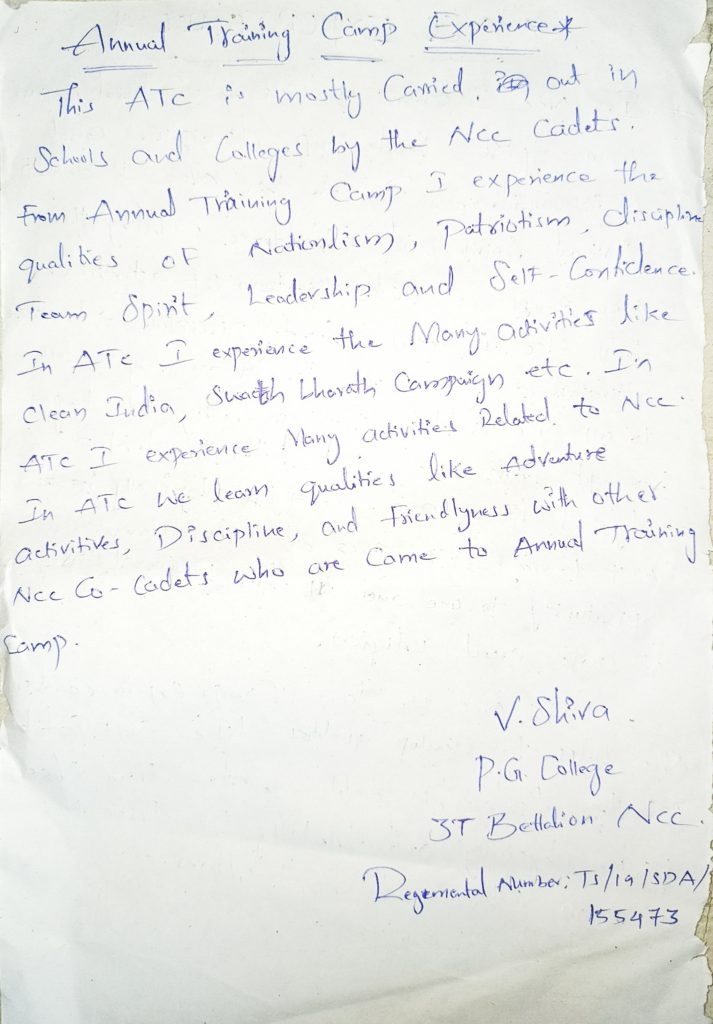 Annual Training Camp Experience*
This ATC is mostly Carried. out in
Schools and Colleges by the Ncc Cadets.
From Annual Training Camp I experience the
qualities of Nationalism, Patriotism, discipline
Team Spirit, Leadership and Self-Confidence.
In ATC I experience the Many activities like
Clean India, Swacth bharath Campaign etc. In
ATC I experience Many activities Related to Ncc.
In ATC we learn qualities like Adventure
activitives, Discipline, and friendlyness with other
Ncc Co-Cadets who are Came to Annual Training
Camp.
V. Shiva.
P.G. College
3T Battalion Ncc.
Regemental Number: TS/19/SDA/
155473